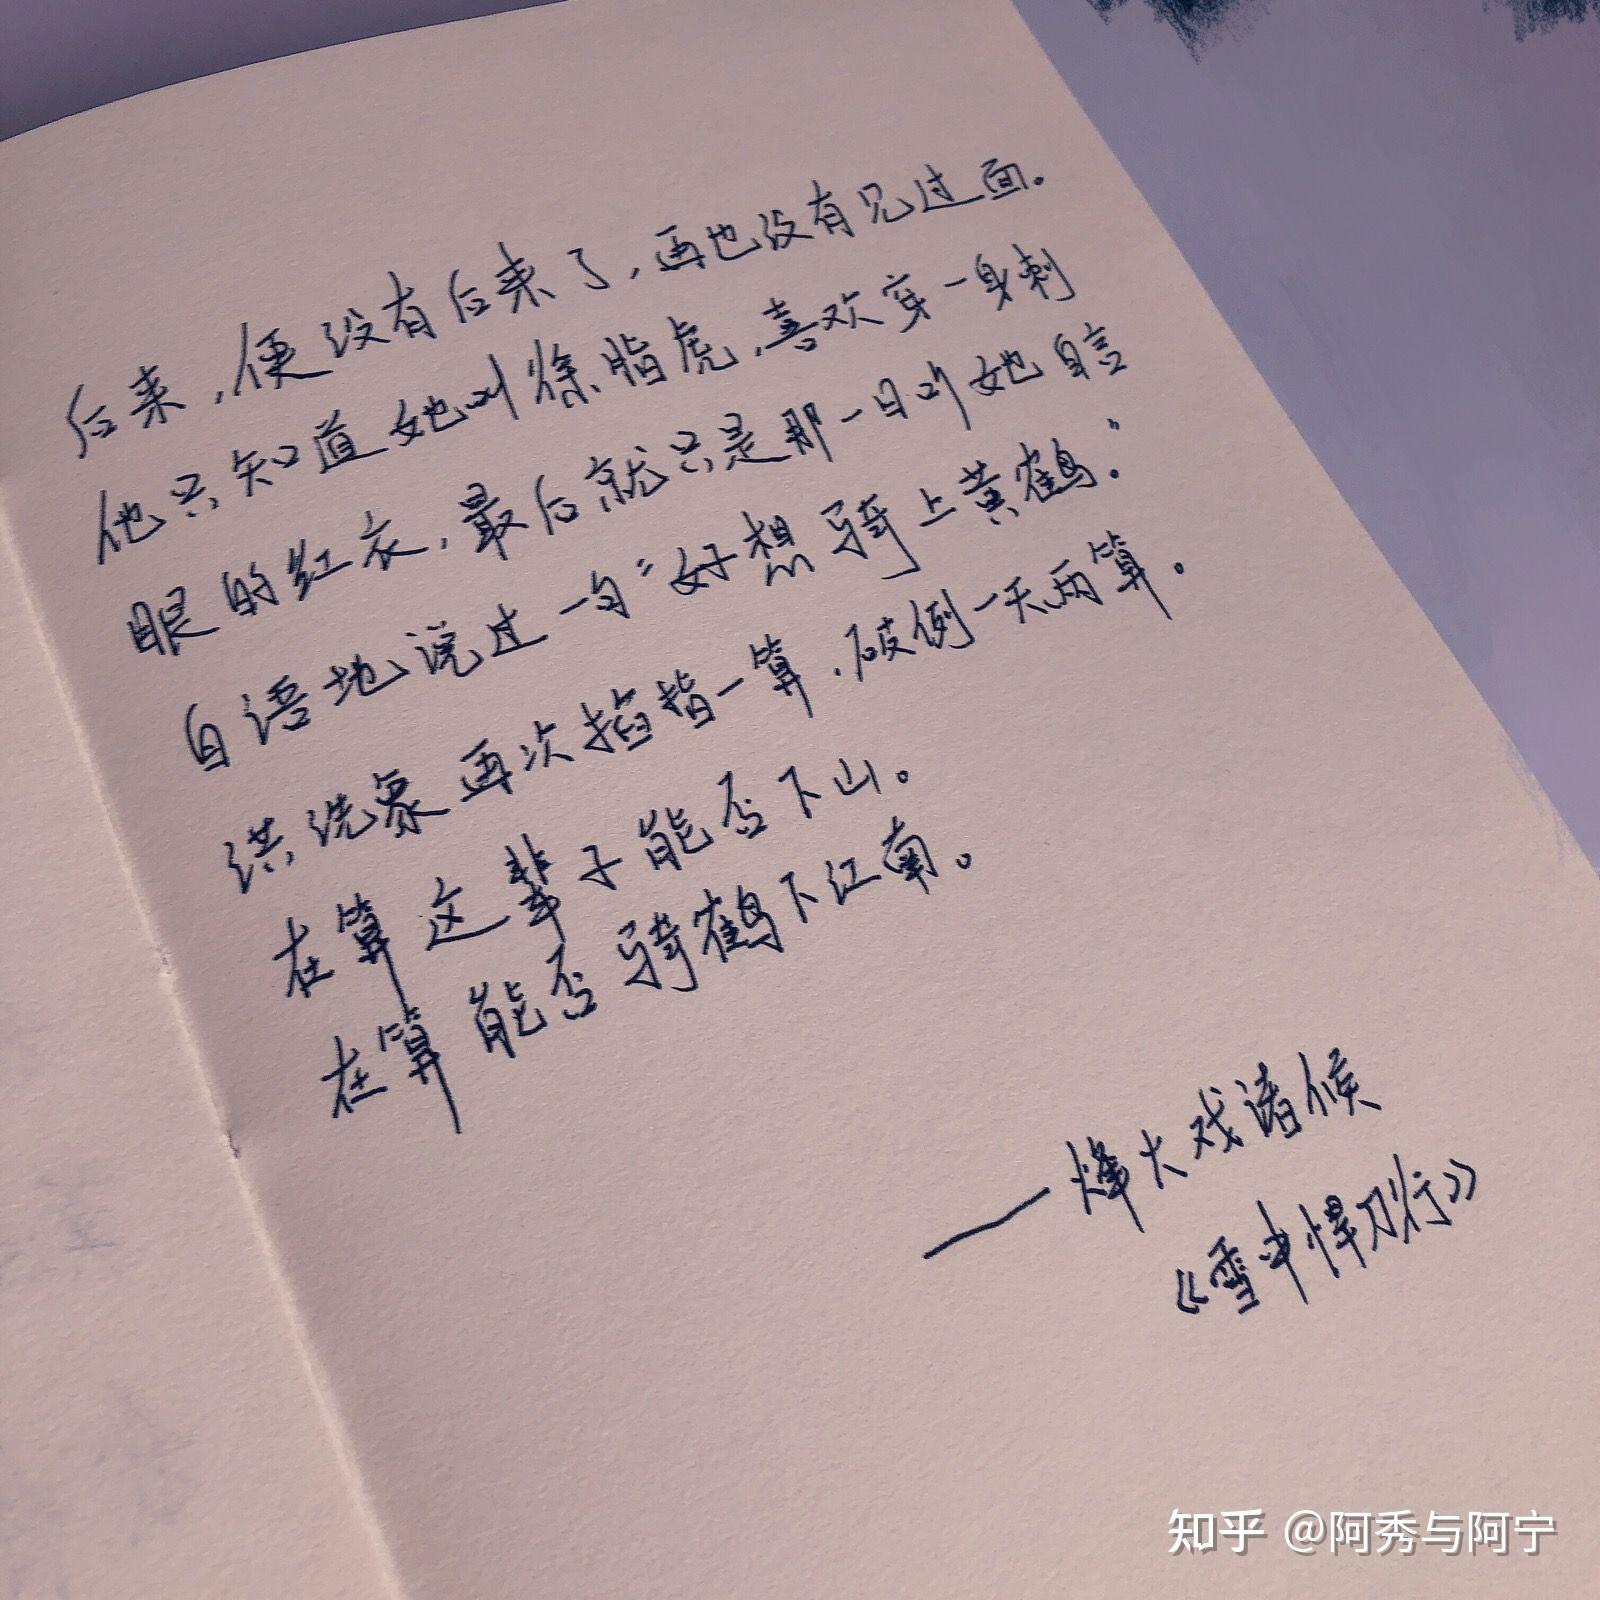 后来，便没有后来了，再也没有见过面。
他只知道她叫徐脂虎，喜欢穿一身刺
眼的红衣，最后就只是那一日听她自言
自语地说过一句“好想骑上黄鹤。”
洪洗象再次掐指一算，破例一天两算。
在算这辈子能否下山。
在算能否骑鹤下江南。
——烽火戏诸候
《雪中悍刀行》
知乎 @阿秀与阿宁